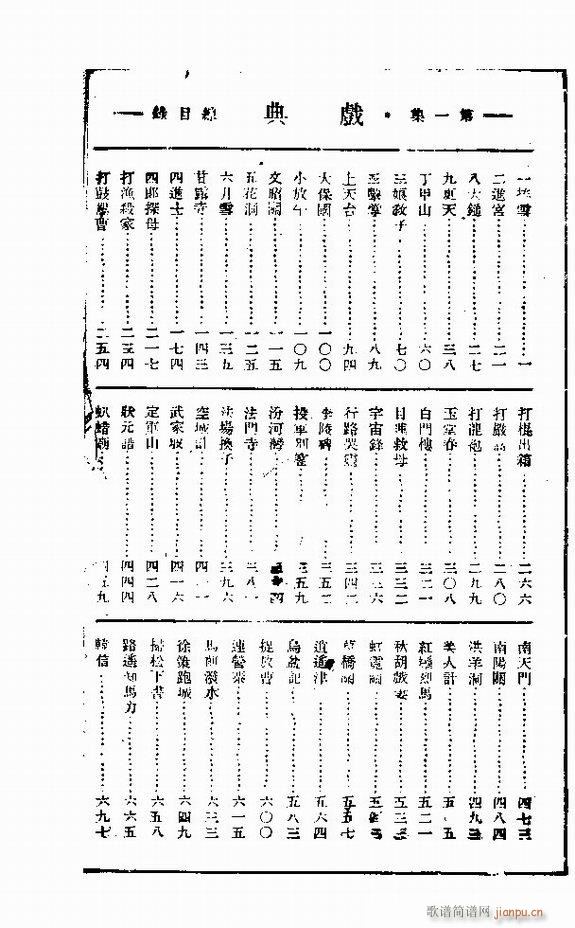 第一集・戲典 總目錄
一捧雪⋯⋯一
二進宮⋯⋯二一
八大鎚⋯⋯二七
九更天⋯⋯三八
丁甲山⋯⋯六〇
三娘教子⋯⋯七〇
三擊掌⋯⋯八九
上天台⋯⋯九四
大保國⋯⋯一〇〇
小放牛⋯⋯一〇九
文昭關⋯⋯一一五
五花洞⋯⋯一二五
六月雪⋯⋯一三五
甘露寺⋯⋯一四三
四進士⋯⋯一七四
四郎探母⋯⋯二一七
打漁殺家⋯⋯二三四
打鼓罵曹⋯⋯二五四
打棍出箱⋯⋯二六六
打嚴嵩⋯⋯二八〇
打龍袍⋯⋯二九九
玉堂春⋯⋯三〇八
白門樓⋯⋯三二一
目連救母⋯⋯三三二
宇宙鋒⋯⋯三三六
行路哭靈⋯⋯三四二
李陵碑⋯⋯三五二
投軍別窰⋯⋯三五九
汾河灣⋯⋯
法門寺⋯⋯三八一
法場換子⋯⋯三九六
空城計⋯⋯四一一
武家坡⋯⋯四一六
定軍山⋯⋯四二八
狀元譜⋯⋯四四四
蚆蜡廟⋯⋯四五九
南天門⋯⋯四七三
南陽關⋯⋯四八四
洪羊洞⋯⋯四九三
美人計⋯⋯五 五
紅鬃烈馬⋯⋯五二一
秋胡戲妻⋯⋯五三二
虹霓關⋯⋯五
草橋關⋯⋯五五七
逍遙津⋯⋯五六四
烏盆記⋯⋯五八三
捉放曹⋯⋯六〇〇
連營寨⋯⋯六一五
馬前潑水⋯⋯六三三
徐策跑城⋯⋯六四九
掃松下書⋯⋯六五八
路遙知馬力⋯⋯六六五
韓信⋯⋯六九七
歌谱简谱网
jianpu.cn